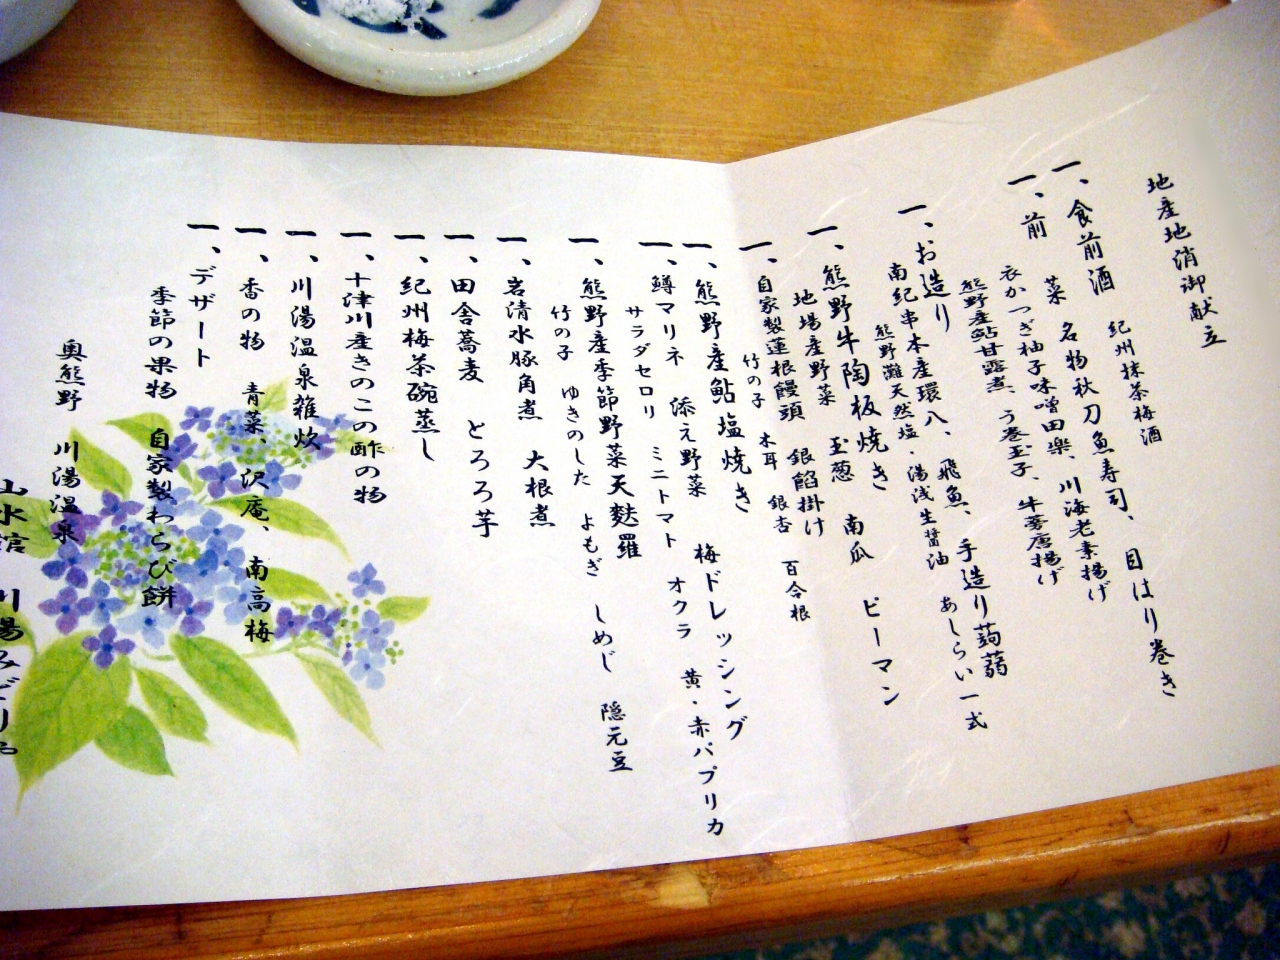 地産地消御献立
一、食前酒 紀州抹茶梅酒
一、前菜 名物秋刀魚寿司、目はり巻き
衣かつぎ柚子味噌田楽、川海老素揚げ
熊野産鮎甘露煮、う巻玉子、牛蒡唐揚げ
一、お造り 南紀串本産環八、飛魚、手造り蒟蒻
熊野灘天然塩・湯浅生醤油 あしらい一式
一、熊野牛陶板焼き
地場産野菜 玉葱 南瓜 ピーマン
一、自家製蓮根饅頭 銀餡掛け
竹の子 木耳 銀杏 百合根
一、熊野産鮎塩焼き
一、鱒マリネ 添え野菜 梅ドレッシング
サラダセロリ ミニトマト オクラ 黄・赤パプリカ
一、熊野産季節野菜天麩羅
竹の子 ゆきのした よもぎ しめじ 隠元豆
一、岩清水豚角煮 大根煮
一、田舎蕎麦 とろろ芋
一、紀州梅茶碗蒸し
一、十津川産きのこの酢の物
一、川湯温泉雑炊
一、香の物 青菜、沢庵、南高梅
一、デザート
季節の果物 自家製わらび餅
奥熊野 川湯温泉
山水館 川湯みどりや